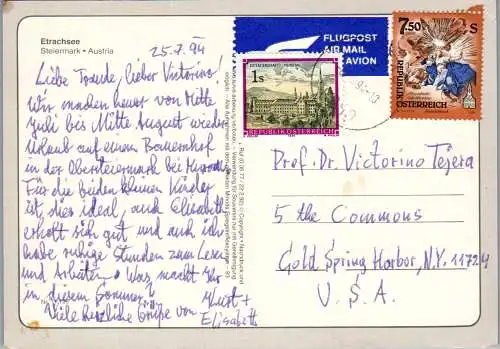 Etrachsee
Steiermark • Austria
25.7.94
Liebe Traude, lieber Victorino!
Wir machen heuer von Mitte
Juli bis Mitte August wieder
Urlaub auf einem Bauernhof
in der Obersteiermark bei
Für die beiden kleinen Kinder
ist dies ideal, auch Elisabeth
erholt sich gut und auch ich
habe ruhige Stunden zum Lesen
und Arbeiten. Was macht Ihr
in diesem Sommer?
Viele herzliche Grüße von
Kurt +
Elisabeth
FLUGPOST
AIR MAIL
PAR AVION
1s
REPUBLIK ÖSTERREICH
7.50
S
REPUBLIK
ÖSTERREICH
Prof. Dr. Victorino Tejera
5 the Commons
Gold Spring Harbor, N.Y. 11724
U.S.A.